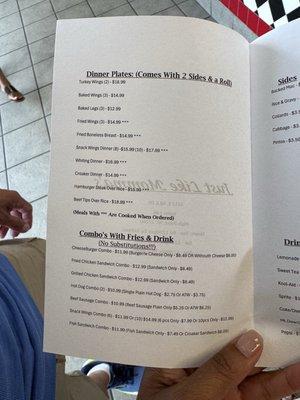 Dinner Plates: (Comes With 2 Sides & a Roll)
Turkey Wings (2) - $18.99
Baked Wings (3) - $14.99
Baked Legs (3) - $12.99
Fried Wings (3) - $14.99 ***
Fried Boneless Breast - $14.99 ***
Snack Wings Dinner (8)-$15.99 (10) - $17.99 ***
Whiting Dinner - $16.99 ***
Croaker Dinner - $14.99 ***
Hamburger Steak Over Rice - $15.99 ***
Beef Tips Over Rice - $18.99 ***
(Meals With *** Are Cooked When Ordered)
Combo's With Fries & Drink
(No Substitutions!!!)
Cheeseburger Combo - $11.99 (Burger/w Cheese Only - $8.49 OR Without Cheese $8.00)
Fried Chicken Sandwich Combo - $12.99 (Sandwich Only - $8.49)
Grilled Chicken Sandwich Combo - $12.99 (Sandwich Only - $8.49)
Hot Dog Combo (2) - $10.99 (Single Plain Hot Dog - $2.75 Or ATW - $3.75)
Beef Sausage Combo - $10.99 (Beef Sausage Plain Only $5.25 Or ATW $6.25)
Snack Wings Combo (6) - $11.99 Or (10) $14.99 (6 pcs Only - $7.99 Or 10pcs Only - $11.99)
Fish Sandwich Combo - $11.99 (Fish Sandwich Only - $7.49 Or Croaker Sandwich $8.99)
Just Like Momma's
Sides
Baked Mac -
Rice & Gravy
Collards - $3.5
Cabbage - $
Pintos - $3.50
Lemonade
Sweet Tea
Kool-Aid -
Sprite - $3
Coke/
Pepsi -